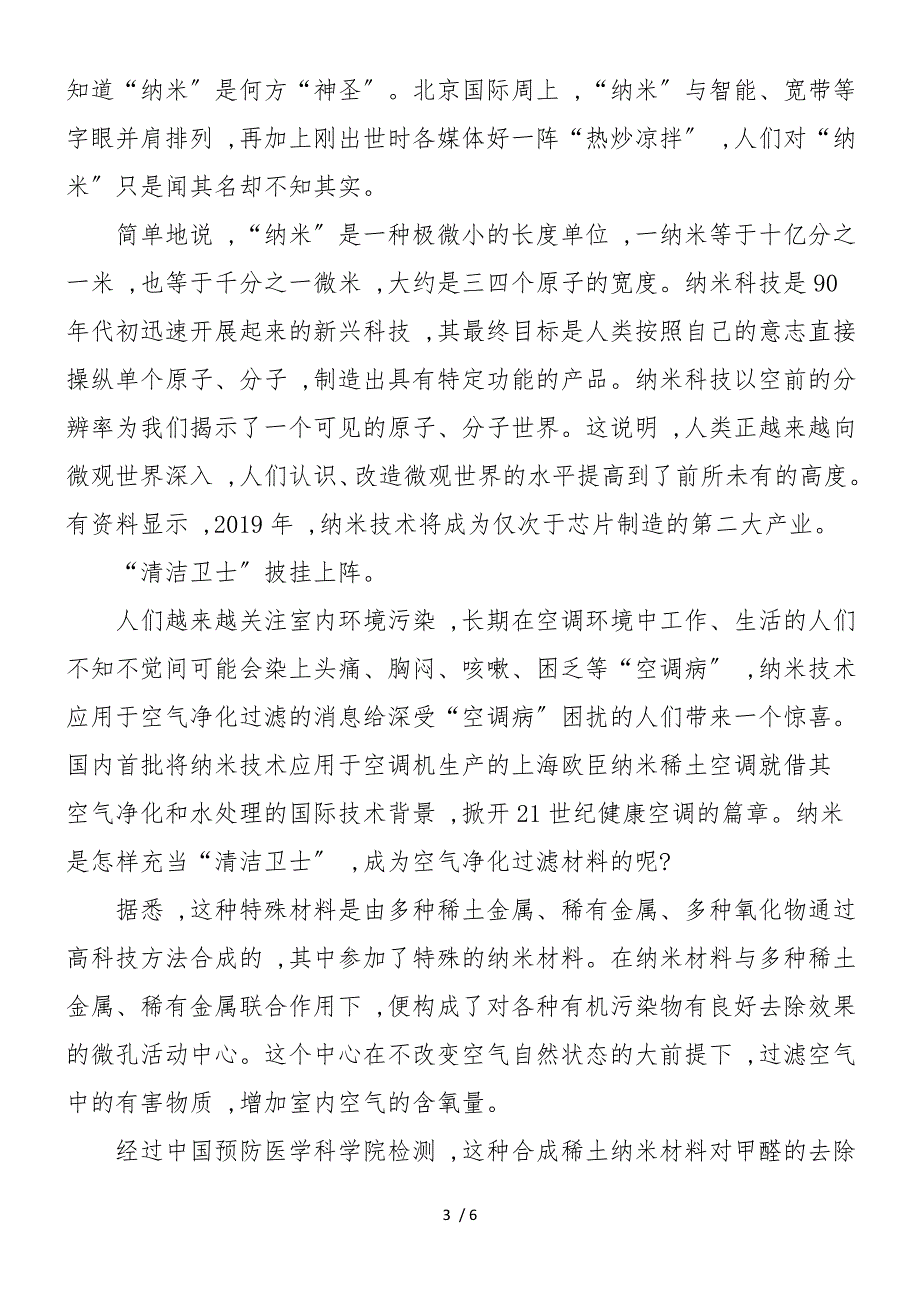 知道“纳米〞是何方“神圣〞。北京国际周上 ,“纳米〞与智能、宽带等
字眼并肩排列 ,再加上刚出世时各媒体好一阵“热炒凉拌〞 ,人们对“纳
米〞只是闻其名却不知其实。
简单地说 ,“纳米〞是一种极微小的长度单位 ,一纳米等于十亿分之
一米 ,也等于千分之一微米 ,大约是三四个原子的宽度。纳米科技是 90
年代初迅速开展起来的新兴科技 ,其最终目标是人类按照自己的意志直接
操纵单个原子、分子 ,制造出具有特定功能的产品。纳米科技以空前的分
辨率为我们揭示了一个可见的原子、分子世界。这说明 ,人类正越来越向
微观世界深入 ,人们认识、改造微观世界的水平提高到了前所未有的高度。
有资料显示 ,2019 年 ,纳米技术将成为仅次于芯片制造的第二大产业。
“清洁卫士〞披挂上阵。
人们越来越关注室内环境污染 ,长期在空调环境中工作、生活的人们
不知不觉间可能会染上头痛、胸闷、咳嗽、困乏等“空调病〞 ,纳米技术
应用于空气净化过滤的消息给深受“空调病〞困扰的人们带来一个惊喜。
国内首批将纳米技术应用于空调机生产的上海欧臣纳米稀土空调就借其
空气净化和水处理的国际技术背景 ,掀开 21 世纪健康空调的篇章。纳米
是怎样充当“清洁卫士〞 ,成为空气净化过滤材料的呢?
据悉 ,这种特殊材料是由多种稀土金属、稀有金属、多种氧化物通过
高科技方法合成的 ,其中参加了特殊的纳米材料。在纳米材料与多种稀土
金属、稀有金属联合作用下 ,便构成了对各种有机污染物有良好去除效果
的微孔活动中心。这个中心在不改变空气自然状态的大前提下 ,过滤空气
中的有害物质 ,增加室内空气的含氧量。
经过中国预防医学科学院检测 ,这种合成稀土纳米材料对甲醛的去除
3 / 6